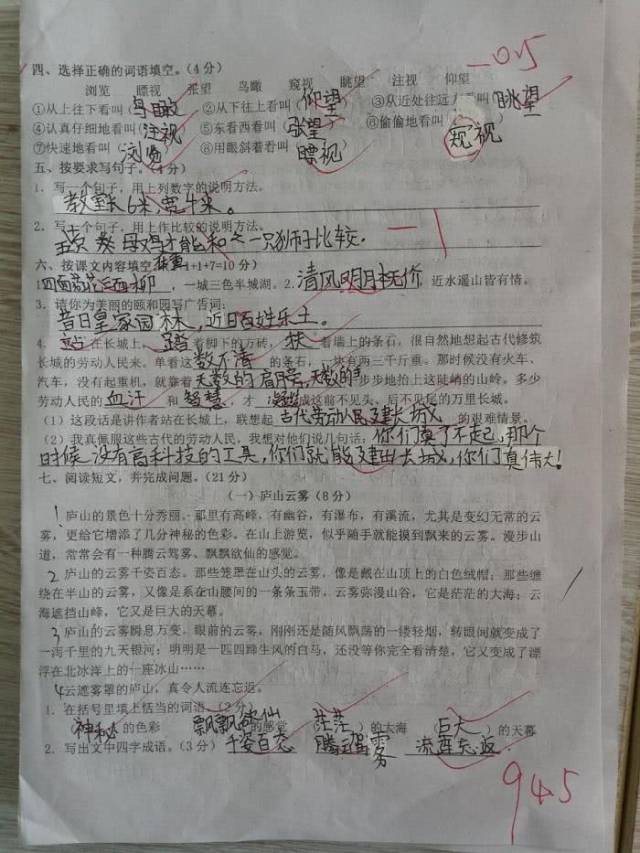 四、选择正确的词语填空。(4分)
-0.5
浏览 瞟视 张望 鸟瞰 窥视 眺望 注视 仰望
①从上往下看叫(鸟瞰) ②从下往上看叫(仰望) ③从近处往远方看叫(眺望)
④认真仔细地看叫(注视) ⑤东看西看叫(张望) ⑥偷偷地看叫(窥视)
⑦快速地看叫(浏览) ⑧用眼斜着看叫(瞟视)
五、按要求写句子。(4分)
1、写一个句子，用上列数字的说明方法。
教室长6米,宽4米。
2、写一个句子，用上作比较的说明方法。
母鸡才能和一只狮子比较.
-1
六、按课文内容填空。 1+1+7=10分)
1、四面荷花三面柳，一城三色半城湖。2、清风明月本无价，近水遥山皆有情。
3、请你为美丽的颐和园写广告词:
昔日皇家园林，近日百姓乐土。
4、站在长城上，踏着脚下的方砖，扶着墙上的条石，很自然地想起古代修筑
长城的劳动人民来。单看这数不清的条石，一块有两三千斤重。那时候没有火车、
汽车，没有起重机，就靠着无数的肩膀,无数的手一步步地抬上这陡峭的山岭。多少
劳动人民的血汗和智慧，才 成这前不见头、后不见尾的万里长城。
(1)这段话是讲作者站在长城上，联想起古代劳动人民建长城的艰难情景。
(2)我真佩服这些古代的劳动人民，我想对他们说几句话,你们真了不起,那个
时候没有高科技的工具,你们就能建出长城,你们真伟大!
七、阅读短文，并完成问题。(21分)
(一)庐山云雾(8分)
1庐山的景色十分秀丽。那里有高峰，有幽谷，有瀑布，有溪流，尤其是变幻无常的云
雾，更给它增添了几分神秘的色彩。在山上游览，似乎随手就能摸到飘来的云雾。漫步山
道，常常会有一种腾云驾雾、飘飘欲仙的感觉。
2庐山的云雾千姿百态。那些笼罩在山头的云雾，像是戴在山顶上的白色绒帽；那些缠
绕在半山的云雾，又像是系在山腰间的一条条玉带。云雾弥漫山谷，它是茫茫的大海；云
雾遮挡山峰，它又是巨大的天幕。
3庐山的云雾瞬息万变。眼前的云雾，刚刚还是随风飘荡的一缕轻烟，转眼间就变成了
一泻千里的九天银河；明明是一匹四蹄生风的白马，还没等你完全看清楚，它又变成了漂
浮在北冰洋上的一座冰山……
4云遮雾罩的庐山，真令人流连忘返。
1、在括号里填上恰当的词语。(2分)
(神秘)的色彩 (飘飘欲仙)的感觉 (茫茫)的大海 (巨大)的天幕
2、写出文中四字成语。(3分) 千姿百态 腾云驾雾 流连忘返。
94.5